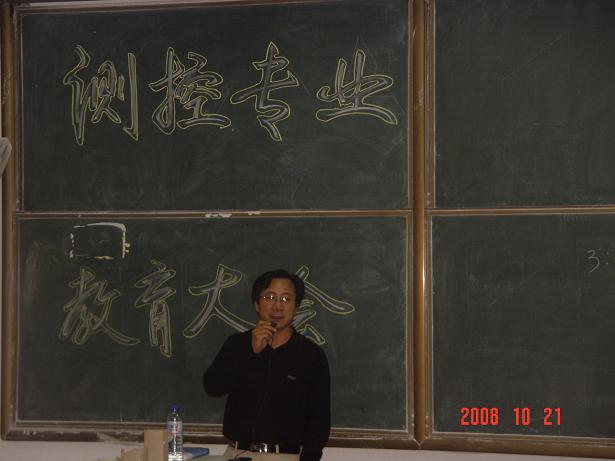 测控专业
教育大会
3:
2008 10 21